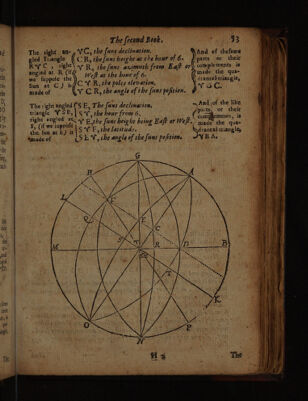 The second Book. 53
The right an-
gled Triangle
R ♈ C, right
angled at R (if
we suppose the
Sun at C) is
made of
♈ C, the suns declination.
C R, the suns height at the hour of 6.
♈ R, the suns azimuth from East or
West at the hour of 6.
C ♈ R, the poles elevation.
♈ C R, the angle of the suns position.
And of these
parts or their
complements is
made the qua-
drantal triangle,
The right angled
triangle ♈ S E,
right angled at
S, (if we suppose
the Sun at E) is
made of
S E, The suns declination.
S ♈, the hour from 6.
♈ E, the suns height being East or West.
S ♈ E, the latitude.
S E ♈, the angle of the suns position.
And of the like
parts or their
complements, is
made the qua-
drantal triangle,
G
A
L
M
B
K
P
N
O
D
R
C
The